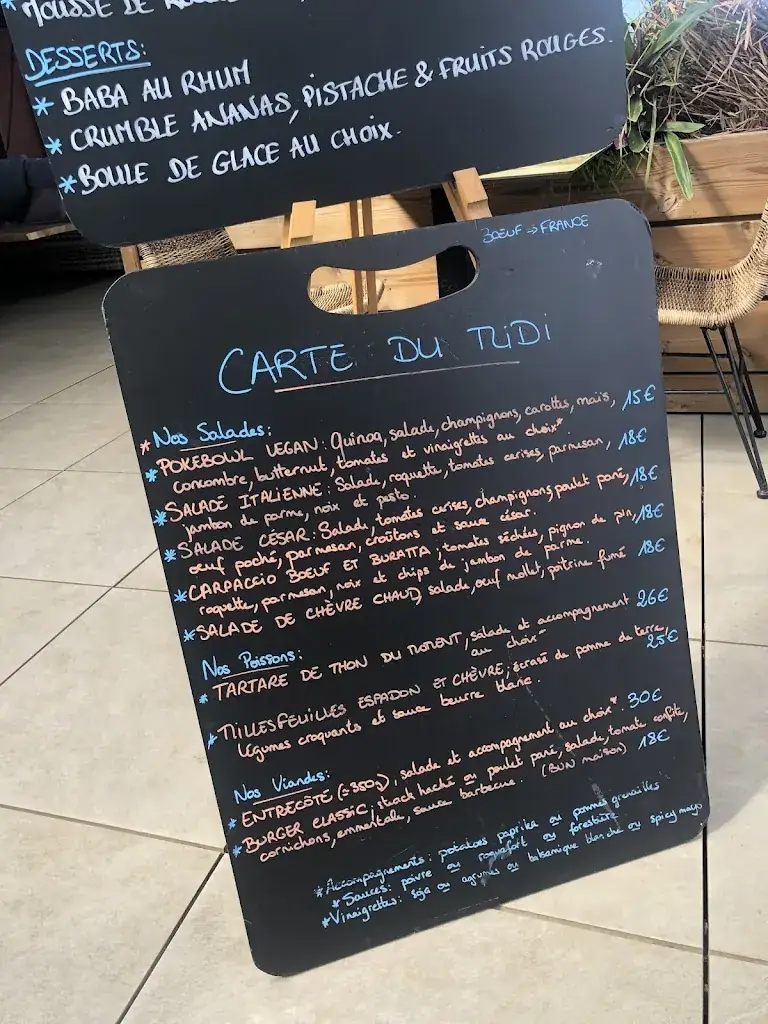 * MOUSSE DE
DESSERTS:
* BABA AU RHUM
* CRUMBLE ANANAS, PISTACHE & FRUITS ROUGES.
* BOULE DE GLACE AU CHOIX.
BOEUF → FRANCE
CARTE DU MIDI
* Nos Salades:
* POKEBOWL VEGAN: Quinoa, salade, champignons, carottes, maïs, 15€
concombre, butternut, tomates et vinaigrettes au choix*
* SALADE ITALIENNE: Salade, roquette, tomates cerises, parmesan, 18€
jambon de parme, noix et pesto.
* SALADE CÉSAR: Salade, tomates cerises, champignons, poulet pané, 18€
œuf poché, parmesan, croûtons et sauce césar.
* CARPACCIO BOEUF ET BURATTA; tomates séchées, pignon de pin, 18€
roquette, parmesan, noix et chips de jambon de parme.
* SALADE DE CHÈVRE CHAUD, salade, œuf mollet, poitrine fumé 18€
Nos Poissons:
* TARTARE DE THON DU MOMENT, salade et accompagnement 26€
au choix*
* MILLESFEUILLES ESPADON ET CHÈVRE; écrasé de pomme de terre, 25€
légumes croquants et sauce beurre blanc.
Nos Viandes:
* ENTRECÔTE (≈350g), salade et accompagnement au choix*. 30€
* BURGER CLASSIC; steack haché ou poulet pané, salade, tomate confite, 18€
cornichons, emmentale, sauce barbecue. (BUN maison)
*Accompagnements: potatoes paprika ou pommes grenailles
*Sauces: poivre ou roquefort ou forestière
*Vinaigrettes: soja ou agrumes ou balsamique blanche ou spicy mayo